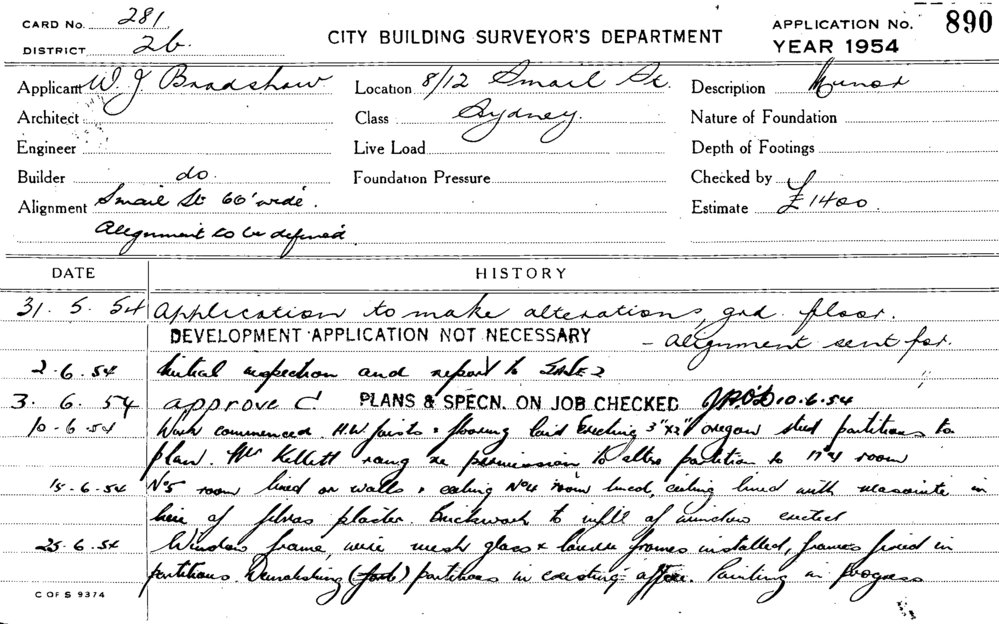 CARD No. 281
DISTRICT 2b.
CITY BUILDING SURVEYOR'S DEPARTMENT
APPLICATION No. 890
YEAR 1954
Applicant W. J. Bradshaw
Location 8/12 Smail St.
Description Minor
Architect
Class Sydney.
Nature of Foundation
Engineer
Live Load
Depth of Footings
Builder do.
Foundation Pressure
Checked by
Alignment Smail St. 60' wide.
Estimate £1400.
Alignment to be defined
DATE HISTORY
31. 5. 54 Application to make alterations, grd. floor.
DEVELOPMENT APPLICATION NOT NECESSARY - alignment sent for.
2.6.54 Initial inspection and report to
3. 6. 54 approve C! PLANS & SPECN. ON JOB CHECKED 10.6.54
10.6.54 Work commenced. H.W. joists & flooring laid Erecting 3"x2" oregon stud partitions to
plan. Mr Kellett rang re permission to alter partition to No 4 room
15.6.54 No 5 room lined on walls & ceiling No 4 room lined, ceiling lined with masonite in
lieu of fibrous plaster. Brickwork to infill of window erected
25.6.54 Window frame, wire mesh glass & louvre frames installed, frames fixed in
partitions. Demolishing (part) partitions in existing office. Painting in progress
C OF S 9374